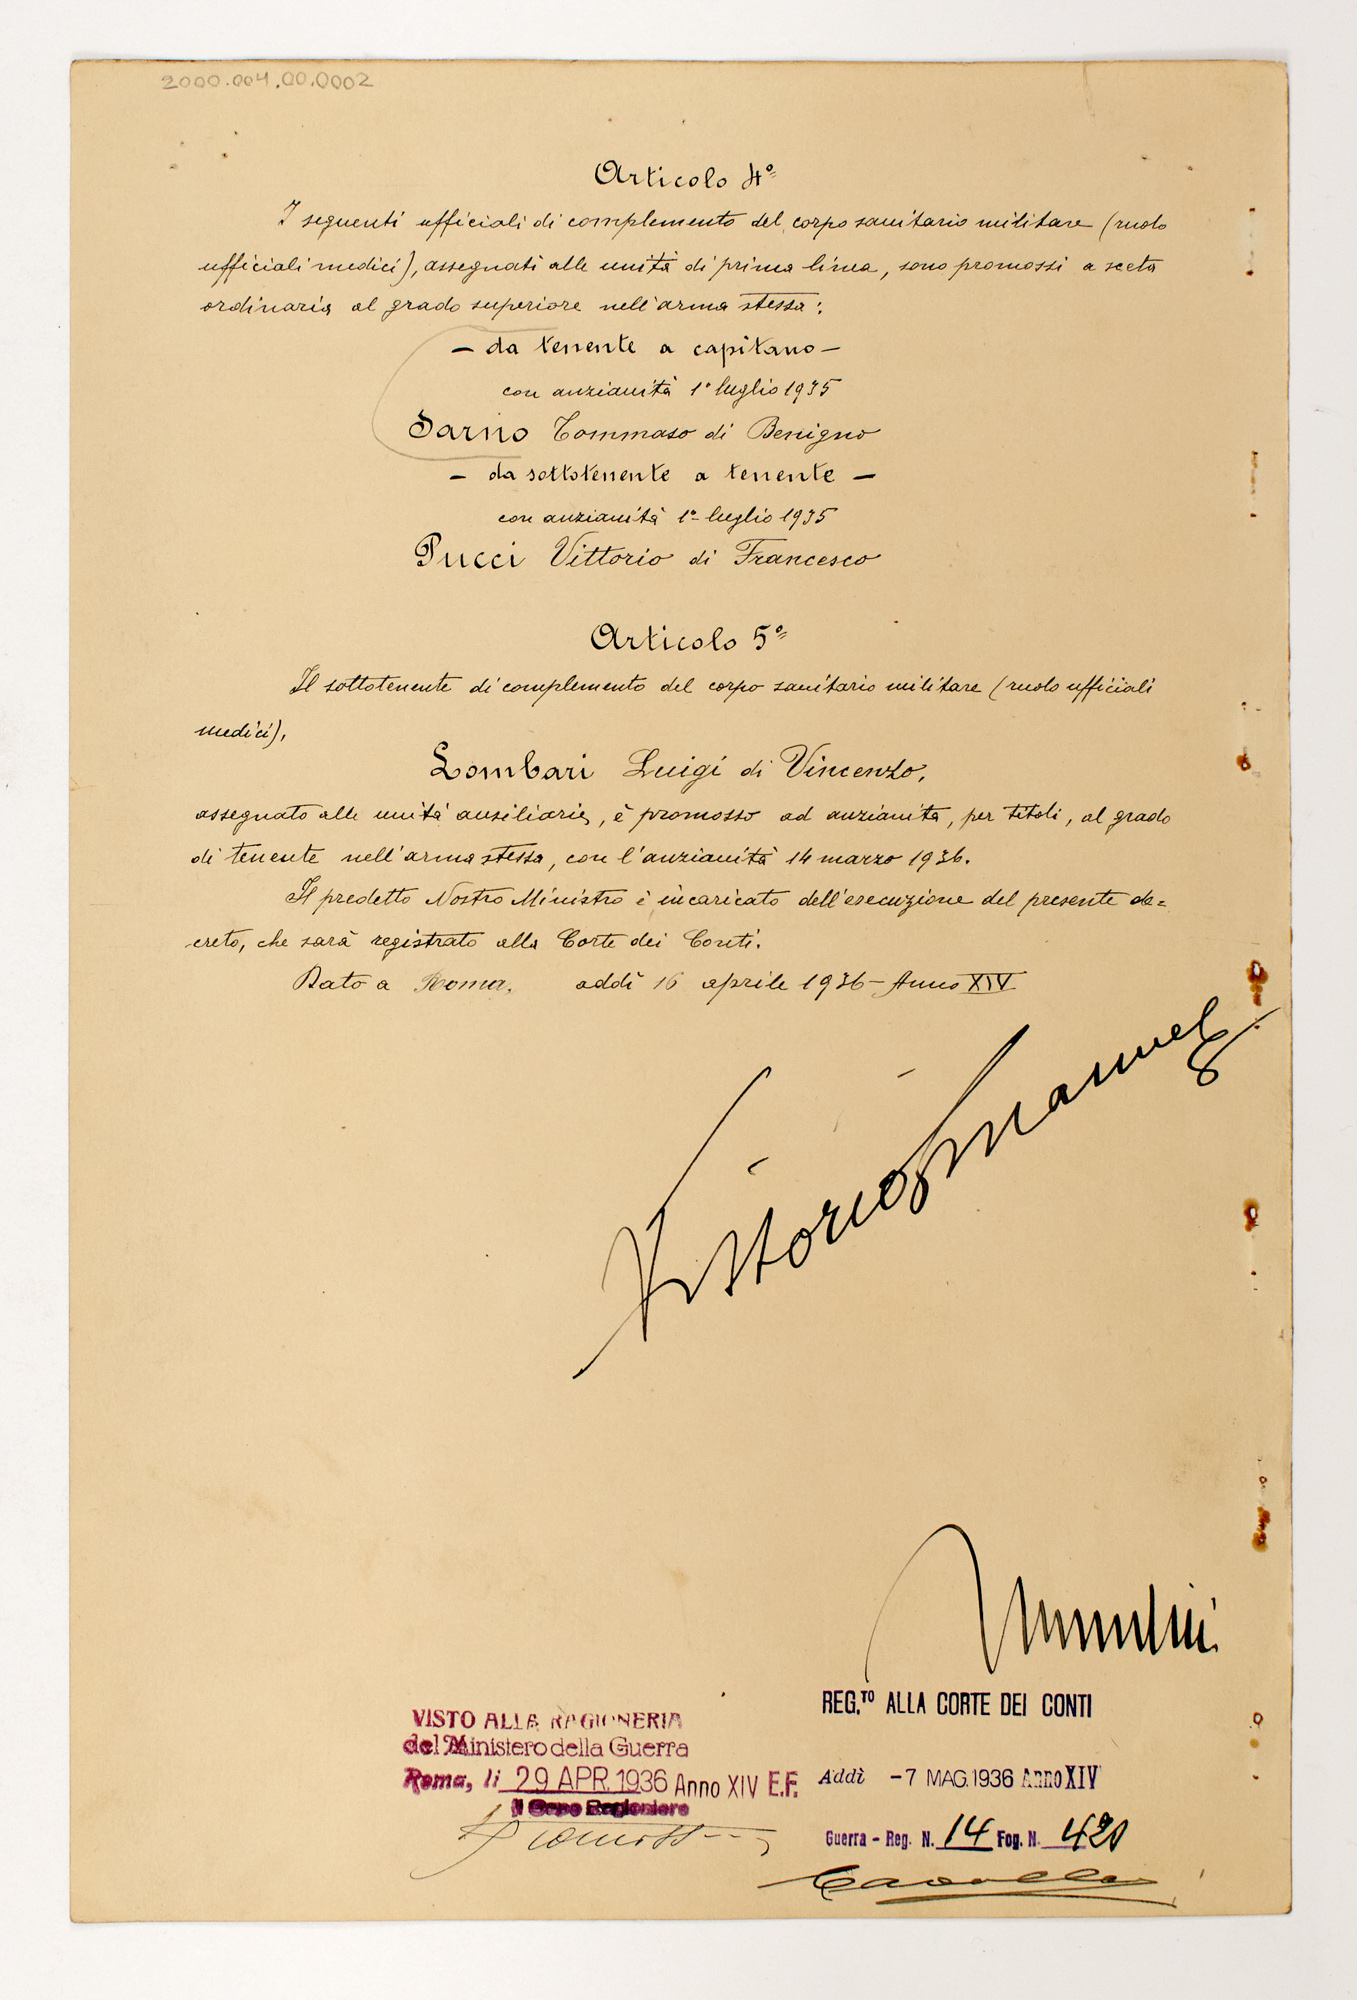 2000.004.00.0002
Articolo 4º
I seguenti ufficiali di complemento del corpo sanitario militare (ruolo
ufficiali medici), assegnati alle unità di prima linea, sono promossi a scelta
ordinaria al grado superiore nell'arma stessa:
— da tenente a capitano —
con anzianità 1º luglio 1935
Sarno Tommaso di Benigno
— da sottotenente a tenente —
con anzianità 1º luglio 1935
Pucci Vittorio di Francesco
Articolo 5º
Il sottotenente di complemento del corpo sanitario militare (ruolo ufficiali
medici),
Lombari Luigi di Vincenzo,
assegnato alle unità ausiliarie, è promosso ad anzianità, per titoli, al grado
di tenente nell'arma stessa, con l'anzianità 14 marzo 1936.
Il predetto Nostro Ministro è incaricato dell'esecuzione del presente de=
creto, che sarà registrato alla Corte dei Conti.
Dato a Roma, addì 16 aprile 1936 – Anno XIV
Vittorio Emanuele
Mussolini
REG.TO ALLA CORTE DEI CONTI
VISTO ALLA RAGIONERIA
del Ministero della Guerra
Roma, li 29 APR. 1936 Anno XIV E.F.
Il Capo Ragioniere
Addì -7 MAG. 1936 ANNO XIV
Guerra - Reg. N. 14 Fog. N.